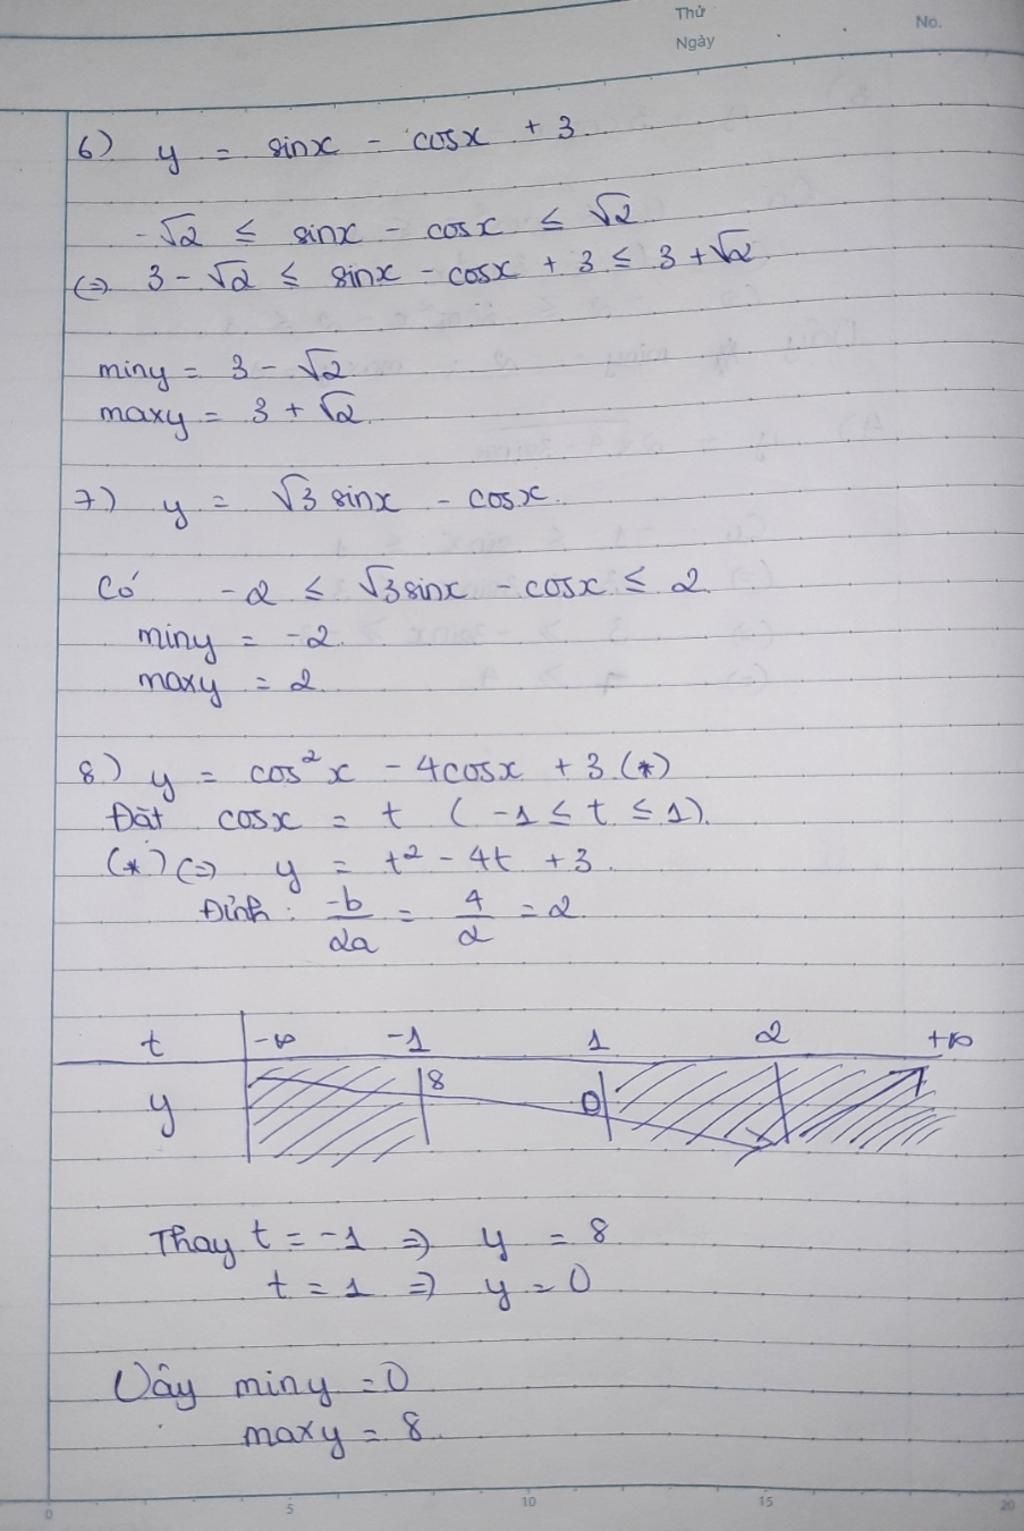 Thứ
Ngày
No.
6) y = sinx - cosx + 3
-√2 ≤ sinx - cosx ≤ √2
(=) 3 - √2 ≤ sinx - cosx + 3 ≤ 3 + √2
miny = 3 - √2
maxy = 3 + √2
7) y = √3 sinx - cosx
Có -2 ≤ √3sinx - cosx ≤ 2
miny = -2
maxy = 2
8) y = cos²x - 4cosx + 3 (*)
Đặt cosx = t ( -1 ≤ t ≤ 1)
(*) (=) y = t² - 4t + 3
Đỉnh : -b/2a = 4/2 = 2
t -∞ -1 1 2 +∞
y 8 0
Thay t = -1 => y = 8
t = 1 => y = 0
Vây miny = 0
maxy = 8
0 5 10 15 20